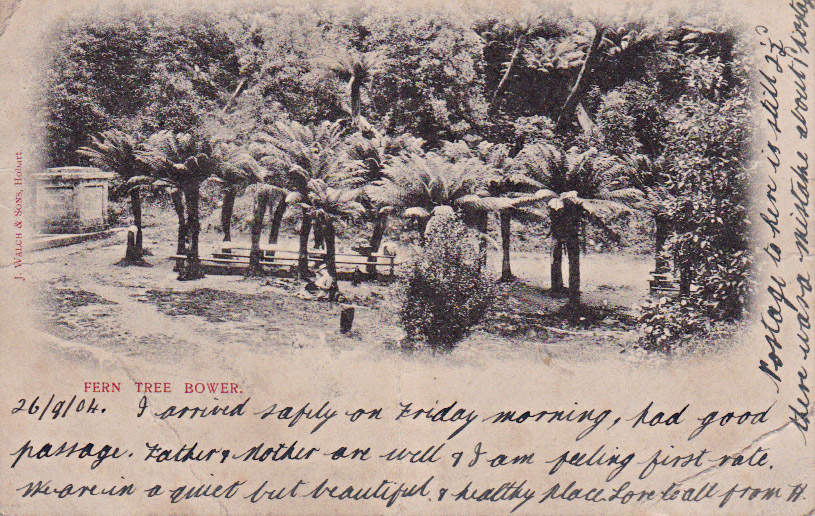 J. WALCH & SONS, Hobart
FERN TREE BOWER.
26/9/04. I arrived safely on Friday morning, had good
passage. Father & Mother are well & I am feeling first rate.
We are in a quiet but beautiful & healthy place Love to all from H.
Postage to here is still 2d
there was a mistake about postage